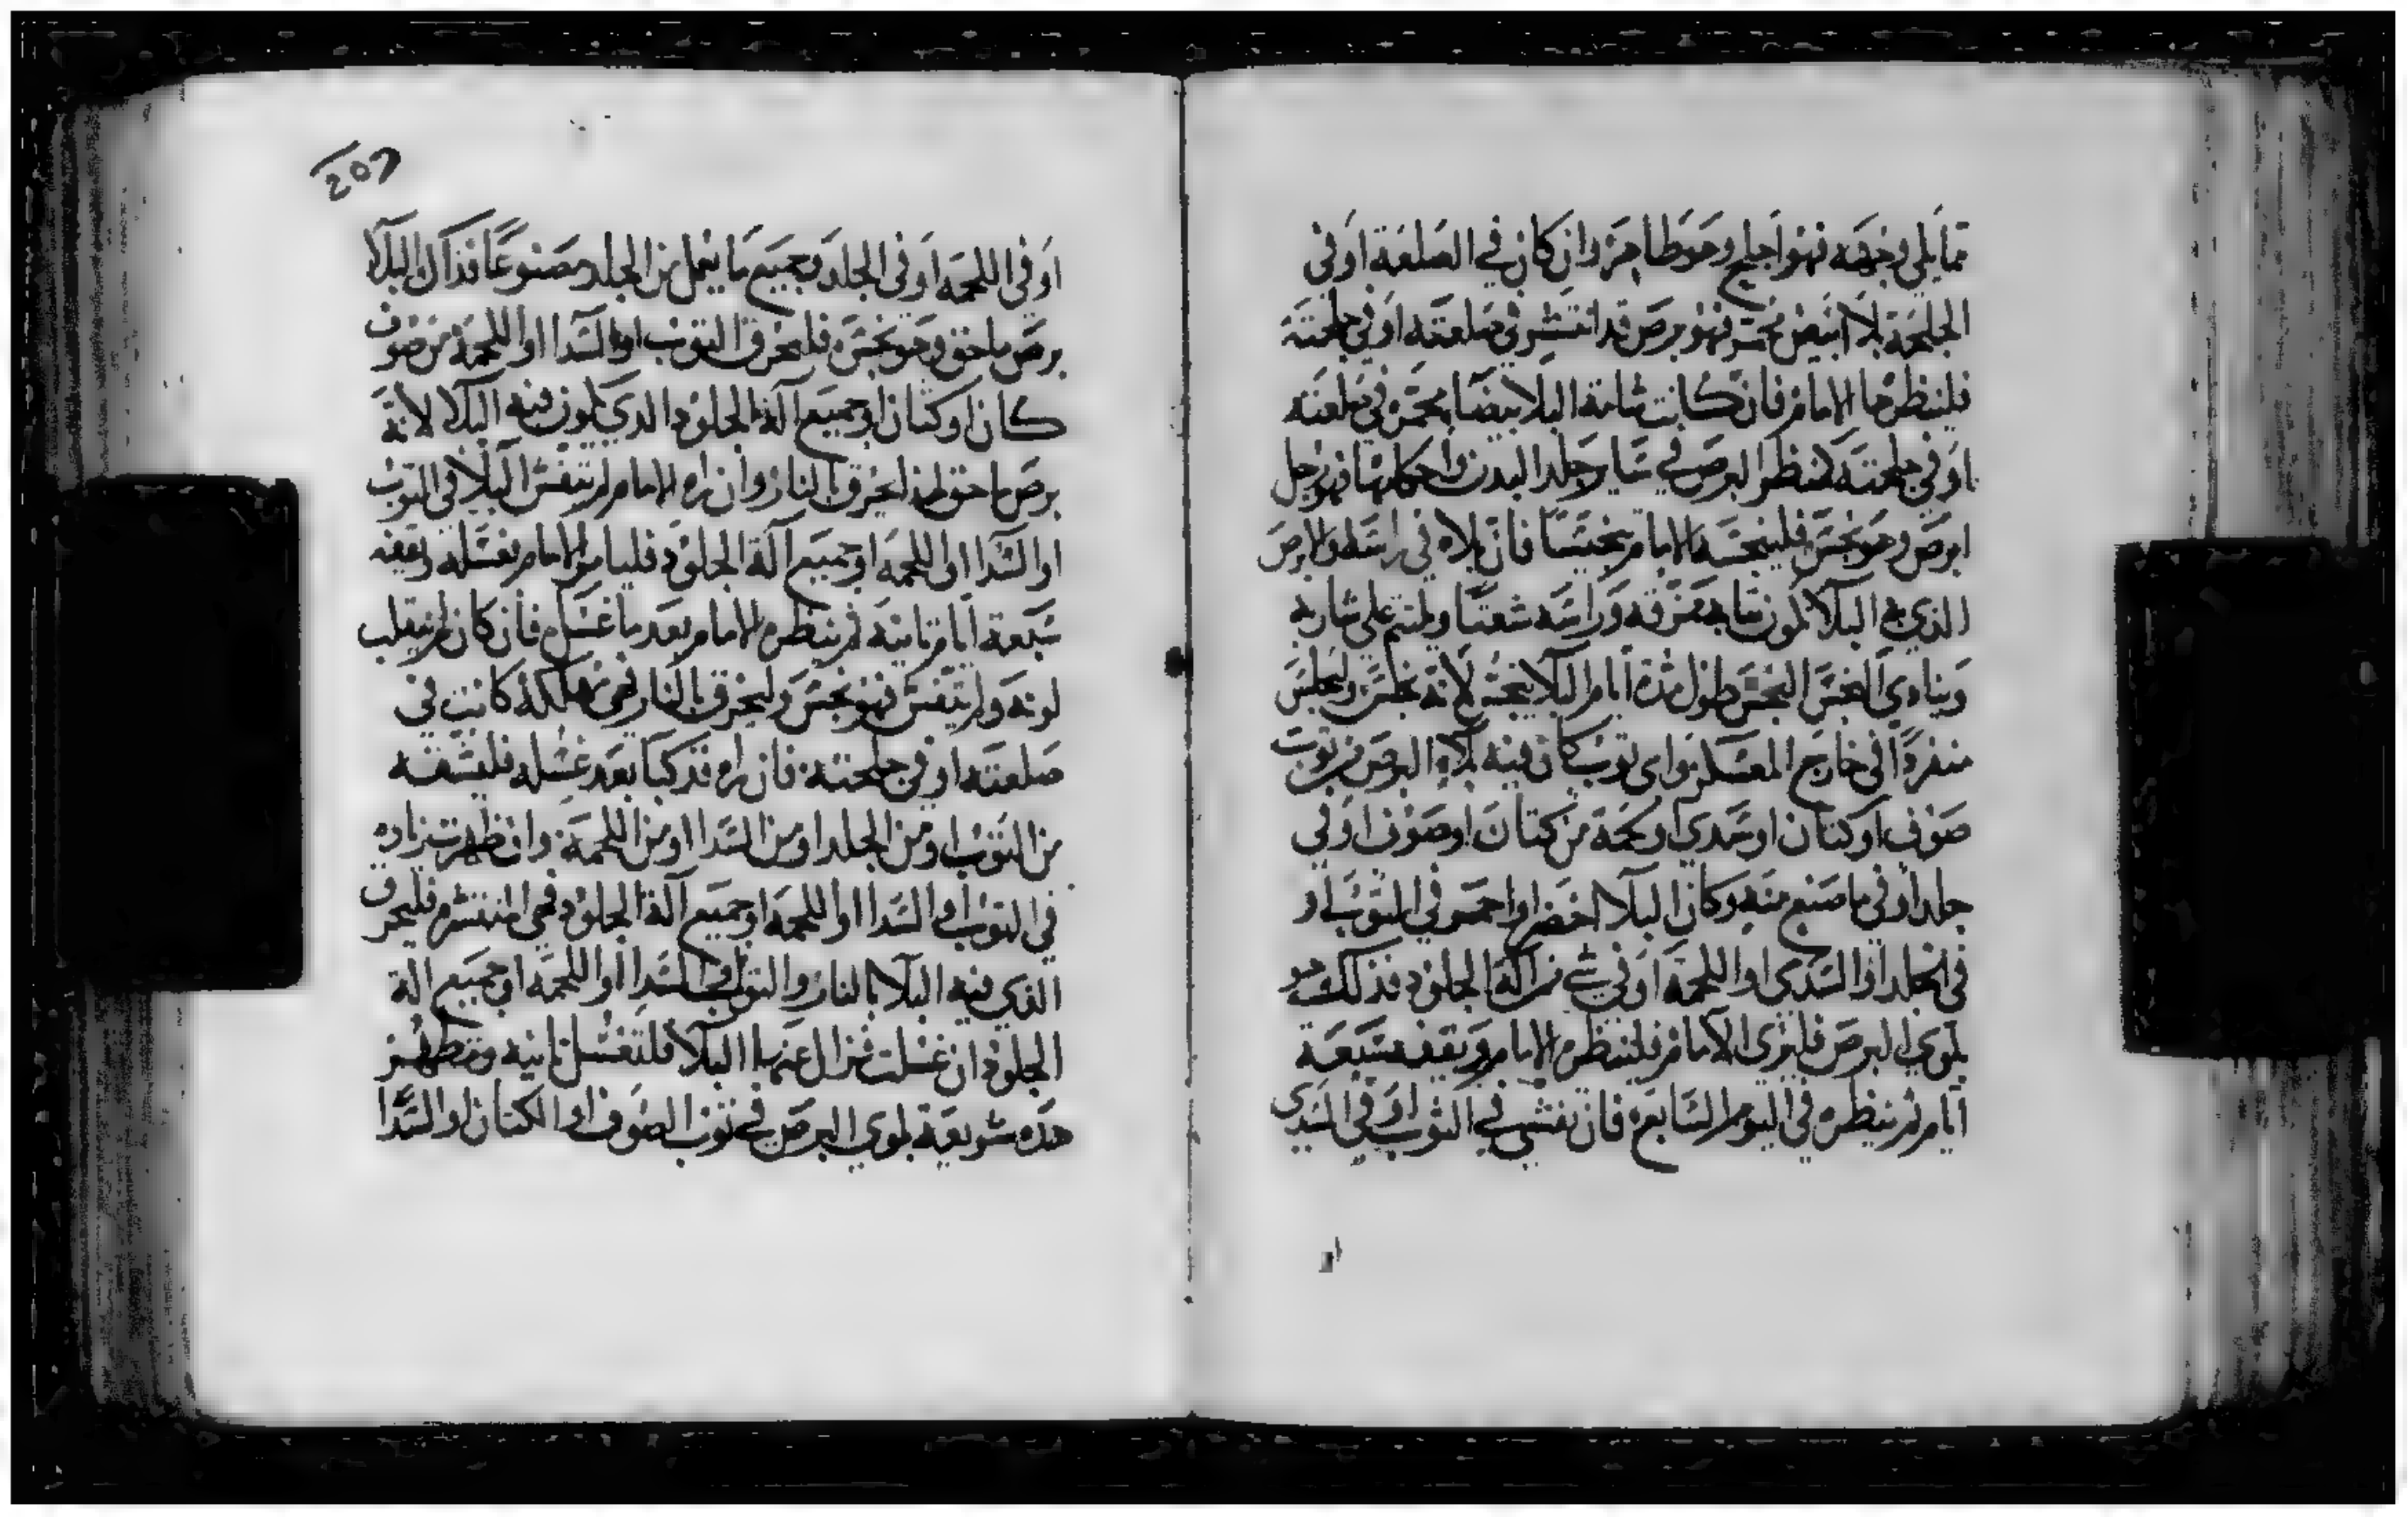 مما يلي وجهه فهو اجلح وهو طاهر وان كان في الصلعة او في
الجلحة بلا ابيض محمر فهو برص قد انتشر في صلعته او في جلحته
فلينظرها الامام فان كانت شامة البلا بيضا محمرة في صلعته
او في جلحته كمنظر البرص في ساير جلد البدن واحكامها فهو رجل
ابرص وهو نجس فلينجسه الامام تنجيسا فان بلاه في راسه والابرص
الذي به البلا تكون ثيابه ممزقه وراسه شعثا ويلتثم علي شاربه
وينادي النجس النجس طول مدة ايام البلا ينجس لانه نجس وليجلس
منفردا في خارج المعسكر واي ثوب كان فيه بلاء البرص من ثوب
صوف او كتان او سدي او لحمة من كتان او صوف او في
جلد او في ما صنع منه وكان البلا اخضر او احمر في الثوب او
في الجلد او السدي او اللحمة او في شي من آلة الجلود فذلك هو
بلوي البرص فليري الامام فلينظره الامام ويقفه سبعة
ايام ثم ينظره في اليوم السابع فان تفشي في الثوب او في السدي
207
او في اللحمه او في الجلد بجميع ما يعمل من الجلد مصنوعا فذاك البلا
برص ماحق وهو نجس فليحرق الثوب او السدا او اللحمة من صوف
كان او كتان او جميع آلة الجلود الدي يكون فيه البلا لانه
برص ماحق لهذا يحرق بالنار وان راه الامام لم يتفش البلا في الثوب
او السدا او اللحمه او جميع آلة الجلود فليامر الامام بغسله ويقفه
سبعة ايام ثانية ثم ينظره الامام بعد ما غسل فان كان لم ينقلب
لونه ولم يتفش فهو نجس وليحرق بالنار فهي مهلكة كانت في
صلعته او في جلحته فان راه قد كبا بعد غسله فليشقه
من الثوب او من الجلد او من السدا او من اللحمة وان ظهرت زياده
في الثوب او السدا او اللحمه او جميع آلة الجلود فهي منتشره فليحرق
الذي فيه البلا بالنار والثوب او السدا او اللحمه او جميع الة
الجلود ان غسلت فزال عنها البلا فلتغسل ثانيه وتطهر
هذه شريعة بلوي البرص في ثوب الصوف او الكتان او السدا